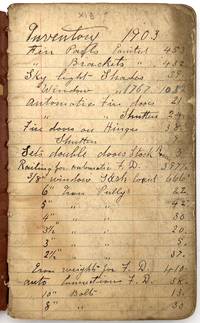 Inventory 1903
Fire Pails Painted 453
" Brackets " 432
Sky light Shades 39
Window " 1767 1082
automatic Fire doors 21
" " Shutters 24
Fire doors on Hinges
" Shutters
Sets double doors Stock
Railing for automatic F. D. 397
3/8" window Sash
6" Iron Pully 22
5" " " 42
4" " " 30
3½ " " 20
3" " " 5
2½" " " 37
Iron weights for F. D. 410
auto Connections F. D. 38
10" Bolts 13
8" " 30